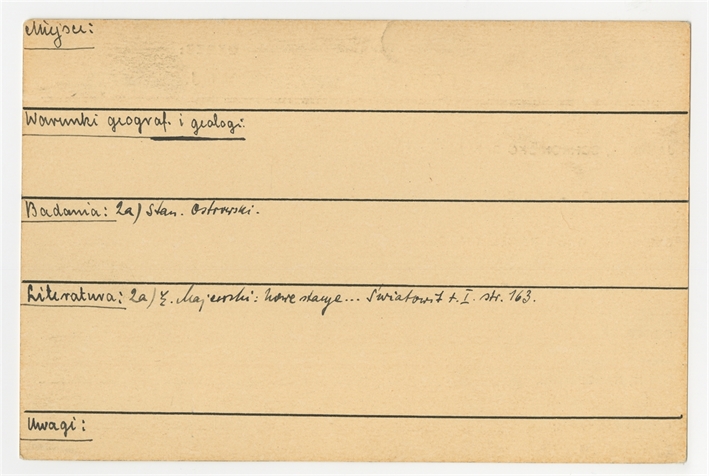 Miejsce:
Warunki geograf. i geologi:
Badania: 2a) Stan. Ostrowski.
Literatura: 2a) E. Majewski: Nowe stacye... Światowit t. I. str. 163.
Uwagi: